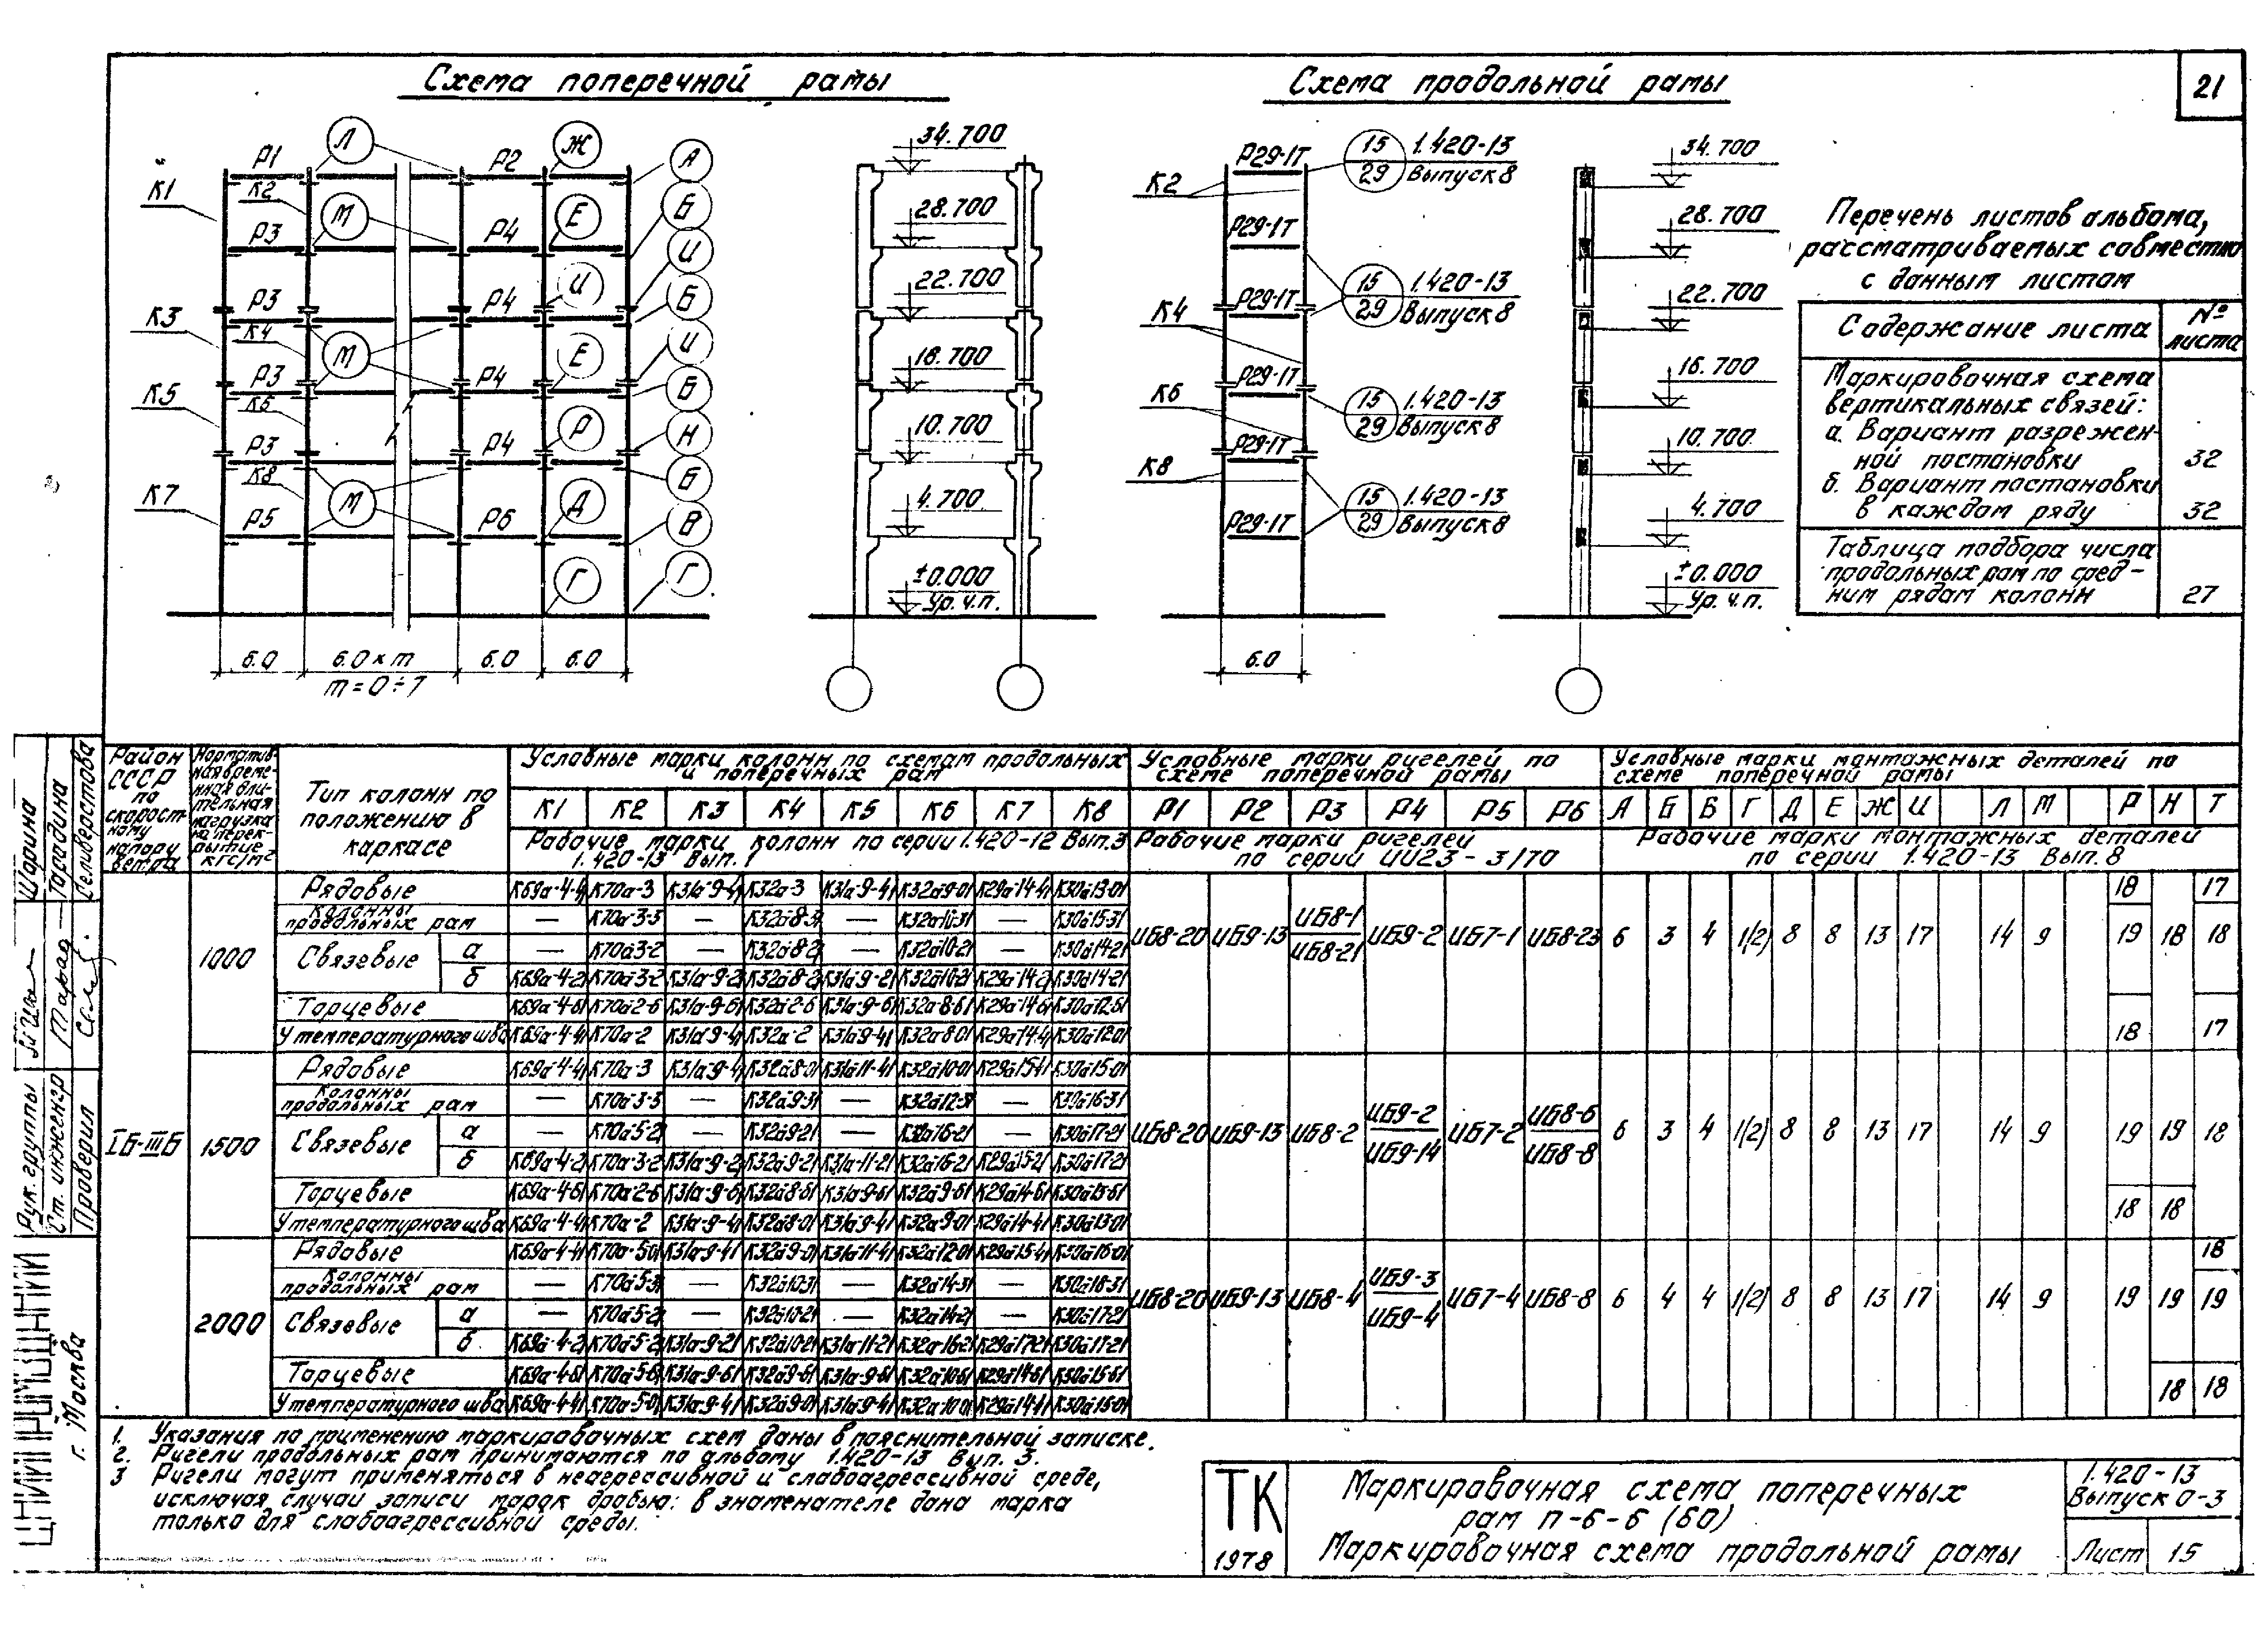 21
Схема поперечной рамы
Схема продольной рамы
Р1 Р2
К1 К2
Р3 Р4
Р3 Р4
К3 К4
Р3 Р4
К5 К6
Р3 Р4
К7 К8
Р5 Р6
Л Ж А
М Е Б
И И
Б
М Е И
Б
Р Н
М Д Б
В
Г Г
6.0 6.0×m 6.0 6.0
m=0÷7
34.700
28.700
22.700
16.700
10.700
4.700
±0.000
Ур. ч.п.
Р29-1Т
К2
15 1.420-13
29 Выпуск 8
Р29-1Т
15 1.420-13
29 Выпуск 8
Р29-1Т
К4
Р29-1Т
К6
15 1.420-13
29 Выпуск 8
Р29-1Т
К8
15 1.420-13
29 Выпуск 8
Р29-1Т
6.0
34.700
28.700
22.700
16.700
10.700
4.700
±0.000
Ур. ч.п.
Перечень листов альбома,
рассматриваемых совместно
с данным листом
Содержание листа № листа
Маркировочная схема
вертикальных связей:
а. Вариант разрежен-
ной постановки 32
б. Вариант постановки
в каждом ряду 32
Таблица подбора числа
продольных рам по сред-
ним рядам колонн 27
Район СССР по скорост- ному напору ветра
Норматив- ная време- нная дли- тельная нагрузка на перек- рытие кгс/м²
Тип колонн по положению в каркасе
Условные марки колонн по схемам продольных
и поперечных рам
Условные марки ригелей по
схеме поперечной рамы
Условные марки монтажных деталей по
схеме поперечной рамы
К1 К2 К3 К4 К5 К6 К7 К8 Р1 Р2 Р3 Р4 Р5 Р6 А Б В Г Д Е Ж И Л М Р Н Т
Рабочие марки колонн по серии 1.420-12 Вып.3
1.420-13 Вып. 1
Рабочие марки ригелей
по серии ИИ23-3/70
Рабочие марки монтажных деталей
по серии 1.420-13 Вып. 8
IБ-IIIБ
1000
Рядовые К69а-4-41 К70а-3 К31а-9-41 К32а-3 К31а-9-41 К32а9-01 К29а-14-41 К30а13-01
Колонны продольных рам — К70а-3-31 — К32а8-31 — К32а10-31 — К30а15-31
Связевые а — К70а3-21 — К32а8-21 — К32а10-21 — К30а14-21
б К69а-4-21 К70а3-21 К31а-9-21 К32а8-21 К31а9-21 К32а10-21 К29а-14-21 К30а14-21
Торцевые К69а-4-61 К70а2-6 К31а-9-61 К32а2-6 К31а-9-61 К32а8-61 К29а-14-61 К30а12-61
У температурного шва К69а-4-41 К70а-2 К31а9-41 К32а-2 К31а9-41 К32а8-01 К29а14-41 К30а12-01
ИБ8-20 ИБ9-13 ИБ8-1 / ИБ8-21 ИБ9-2 ИБ7-1 ИБ8-23 6 3 4 1(2) 8 8 13 17 14 9 18 19 18 18 17 18 17
1500
Рядовые К69а-4-41 К70а-3 К31а-9-41 К32а8-01 К31а11-41 К32а10-01 К29а15-41 К30а15-01
Колонны продольных рам — К70а-3-31 — К32а9-31 — К32а12-31 — К30а16-31
Связевые а — К70а5-21 — К32а9-21 — К32а16-21 — К30а17-21
б К69а-4-21 К70а-3-21 К31а-9-21 К32а9-21 К31а-11-21 К32а16-21 К29а15-21 К30а17-21
Торцевые К69а-4-61 К70а-2-6 К31а-9-61 К32а8-61 К31а9-61 К32а9-61 К29а14-61 К30а13-61
У температурного шва К69а-4-41 К70а-2 К31а-9-41 К32а8-01 К31а9-41 К32а9-01 К29а14-41 К30а13-01
ИБ8-20 ИБ9-13 ИБ8-2 ИБ9-2 / ИБ9-14 ИБ7-2 ИБ8-6 / ИБ8-8 6 3 4 1(2) 8 8 13 17 14 9 19 18 19 18 18
2000
Рядовые К69а-4-41 К70а-5-01 К31а9-41 К32а9-01 К31а11-41 К32а12-01 К29а15-41 К30а16-01
Колонны продольных рам — К70а5-31 — К32а10-31 — К32а14-31 — К30а16-31
Связевые а — К70а5-21 — К32а10-21 — К32а14-21 — К30а17-21
б К69а-4-21 К70а5-21 К31а-9-21 К32а10-21 К31а-11-21 К32а16-21 К29а17-21 К30а17-21
Торцевые К69а-4-61 К70а5-61 К31а-9-61 К32а9-61 К31а-9-61 К32а10-61 К29а14-61 К30а15-61
У температурного шва К69а-4-41 К70а-5-01 К31а9-41 К32а9-01 К31а9-41 К32а10-01 К29а14-41 К30а15-01
ИБ8-20 ИБ9-13 ИБ8-4 ИБ9-3 / ИБ9-4 ИБ7-4 ИБ8-8 6 4 4 1(2) 8 8 13 17 14 9 19 19 18 18 19 18
1. Указания по применению маркировочных схем даны в пояснительной записке.
2. Ригели продольных рам принимаются по альбому 1.420-13 Вып. 3.
3 Ригели могут применяться в неагрессивной и слабоагрессивной среде,
исключая случаи записи марок дробью: в знаменателе дана марка
только для слабоагрессивной среды.
ТК
1978
Маркировочная схема поперечных
рам п-6-6 (60)
Маркировочная схема продольной рамы
1.420-13
Выпуск 0-3
Лист 15
ЦНИИПРОМЗДАНИЙ
г. Москва
Рук. группы Шарина
Ст. инженер Тарадина
Проверил Селиверстова